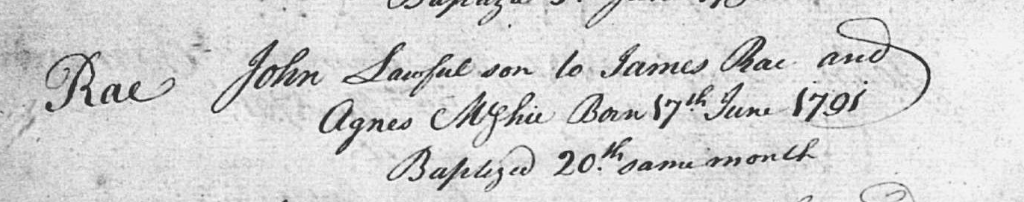 Rae John Lawful son to James Rae and
Agnes McGhie Born 17th June 1791
Baptized 20.th same month